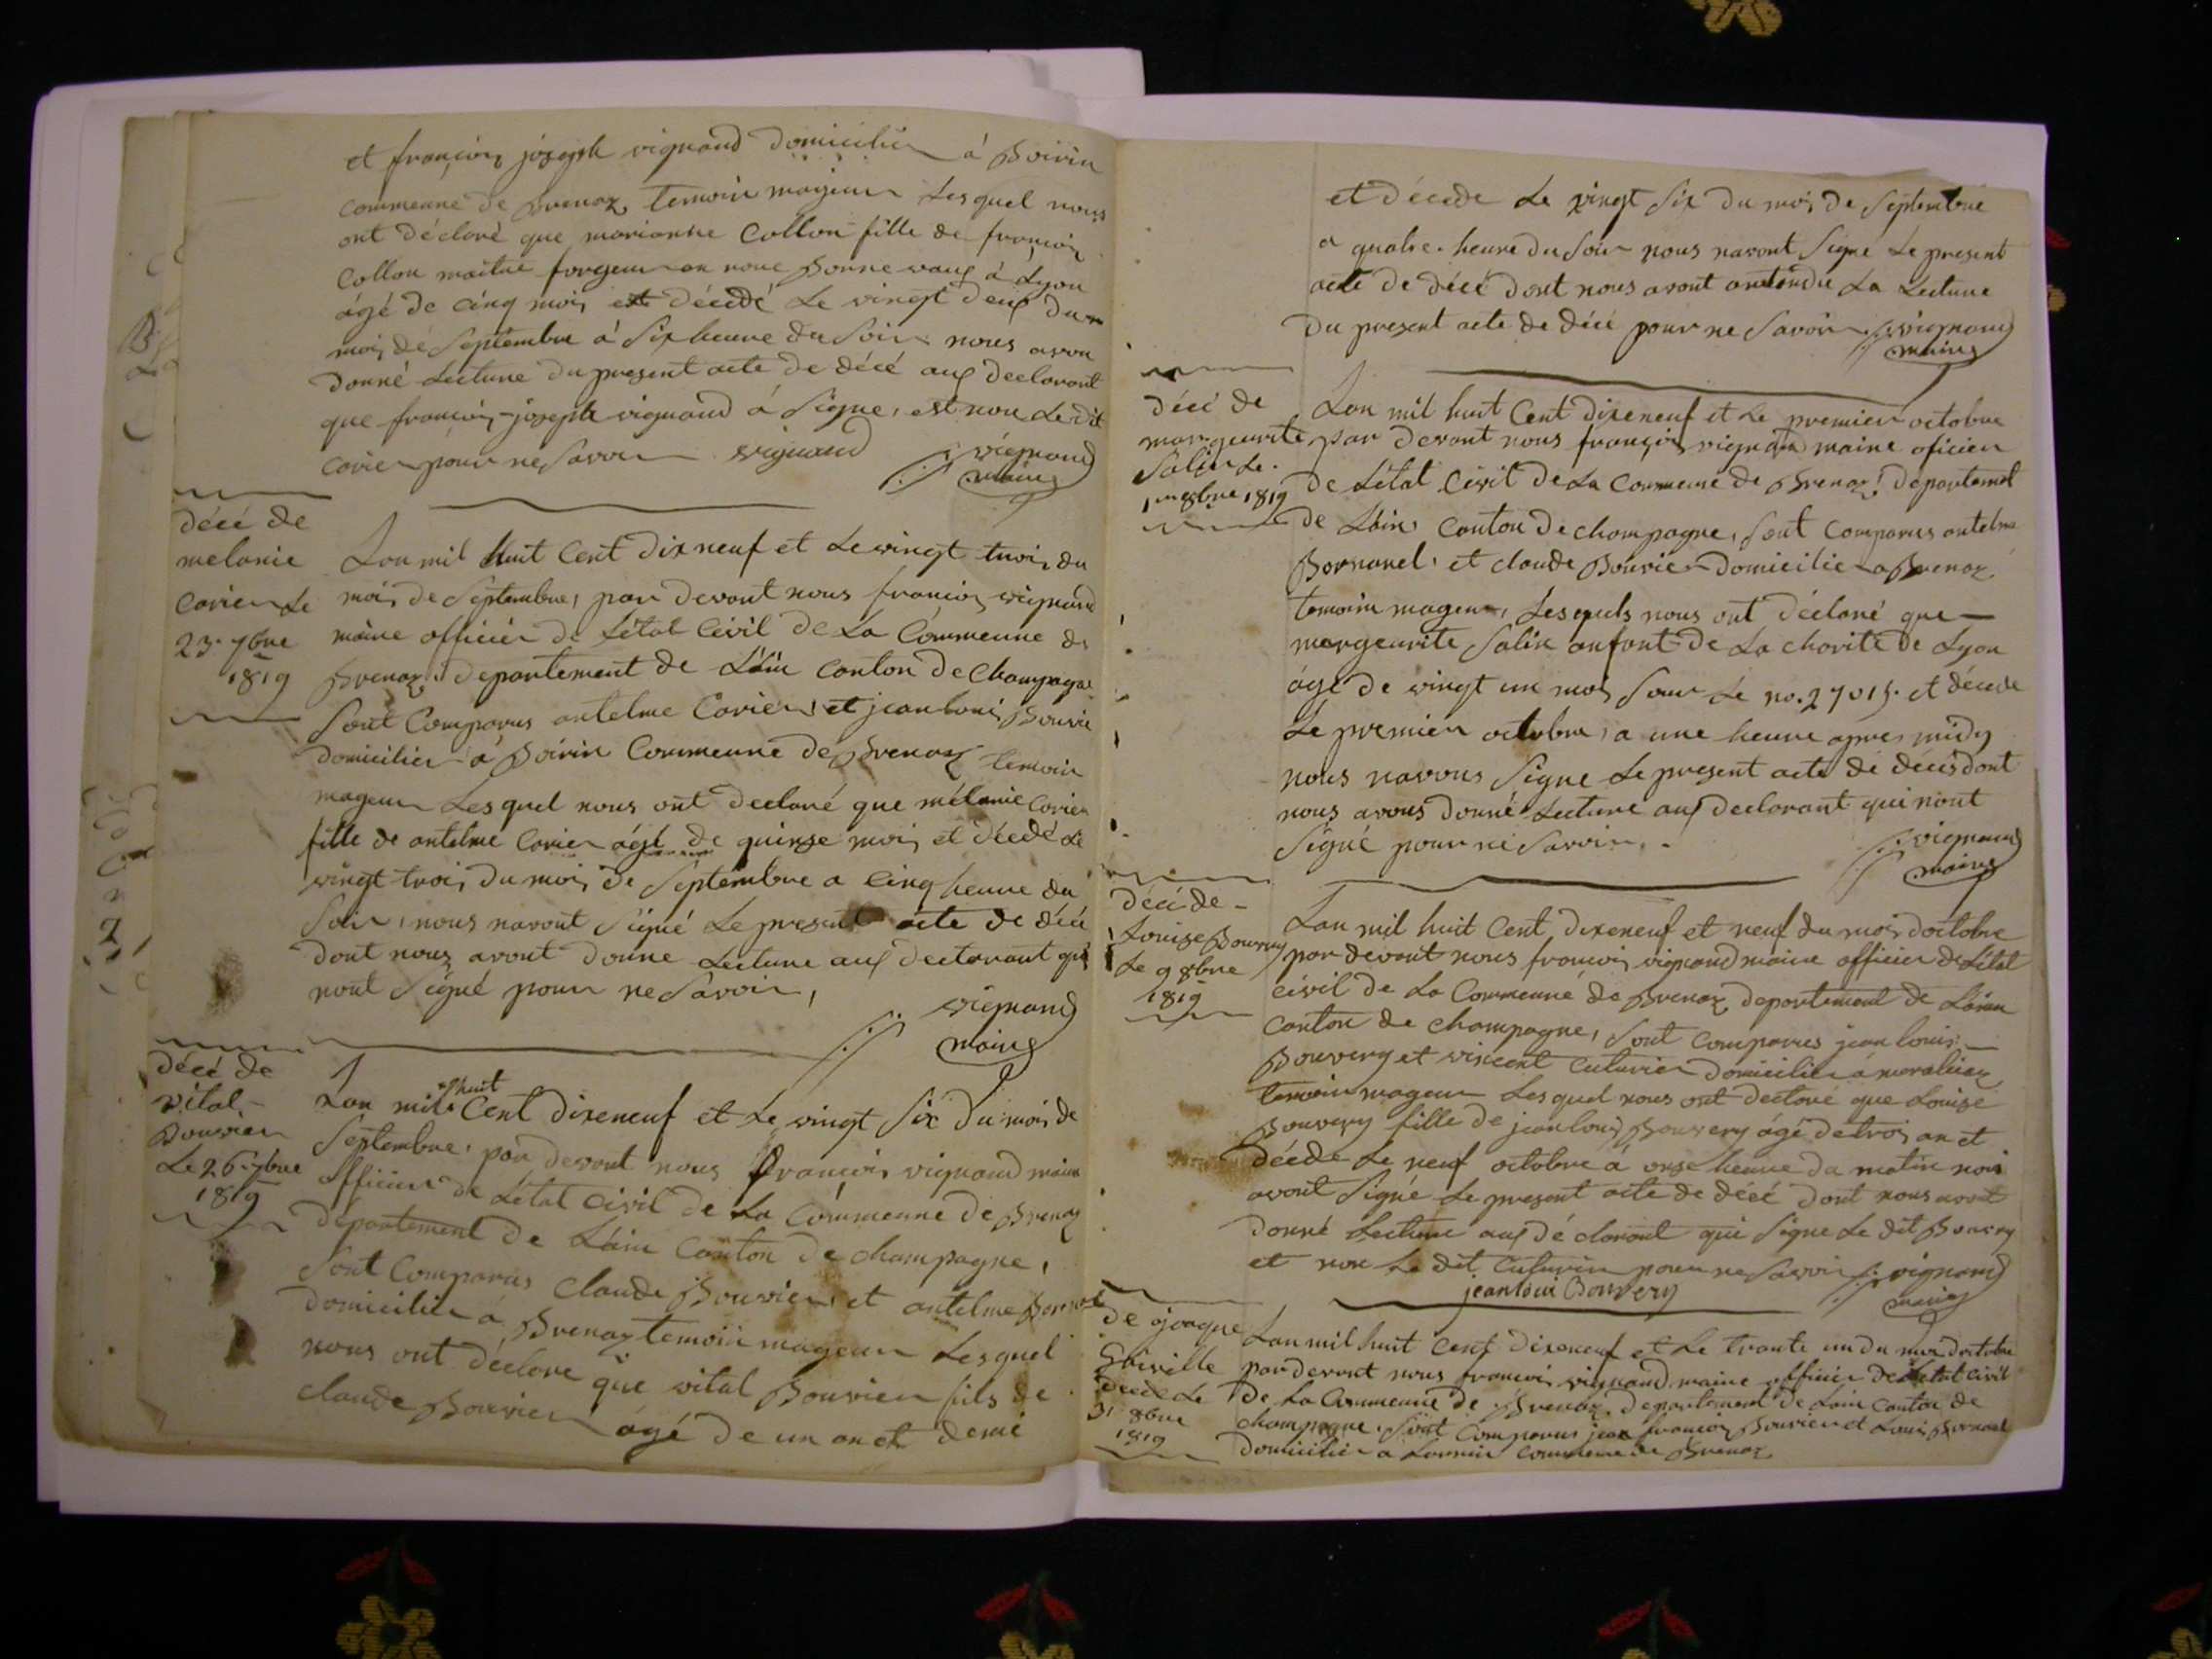 et françois joseph vignand domicilier à Boirin
commeune de Brenaz, temoin majeur Lesquel nous
ont déclaré que marianne Collon fille de françois
Collon maitre forgeur en rue Bonnevaux à Lyon
ágé de cinq mois et décédé Le vingt deux du
mois de Septembre à Six heure du Soir nous avon
donné Lecture du present acte de décé aux declarant
que françois-joseph vignand á Signe, et non Le dit
Carier pour ne Savoir vignand vignand
maire
décé de
melanie
Carier Le
23. 7bre
1819
Lan mil huit Cent dix neuf et Le vingt trois du
mois de Septembre, par devant nous françois vignand
maire officier de Létat Civil de La Commeune de
Brenaz, departement de L'ain canton de Champagne
Sont Comparus antelme Carier, et jean louis Bouvie
domicilier à Boirin Commeune de Brenaz temoin
mageur Lesquel nous ont declaré que mélanie Carier
fille de antelme Carier ágé de quinze mois et décédé Le
vingt trois du mois de Septembre a Cinq heure du
Soir, nous navont Signé Le present acte de décé
dont nous avont donne Lecture aux declarant qui
nont Signé pour ne Savoir,
vignand
maire
décé de
vital
Bouvier
Le 26. 7bre
1819
Lan mil huit Cent dixeneuf et Le vingt Six du mois de
Septembre, par devant nous françois vignand maire
officier de Létat Civil de La Commeune de Brenaz
département de L'ain Canton de champagne,
Sont Comparus Claude Bouvier, et antelme
domicilier à Brenaz temoin mageur Lesquel
nous ont déclare que vital Bouvier fils de
claude Bouvier ágé de un an et demi
et décede Le vingt Six du mois de Septembre
a quatre heure du Soir nous navont Signé Le present
acte de décé dont nous avont antendu La Lecture
du present acte de décé pour ne Savoir vignand
maire
décé de
margeurite
Salin Le
1er 8bre 1819
Lan mil huit Cent dixeneuf et Le premier octobre
par devant nous françois vignand maire oficier
de Létat Civil de La Commeune de Brenaz, département
de L'ain, Canton de champagne, Sont Comparus antelme
Bornarel, et claude Bouvier domicilier a Brenaz
temoin mageur, Lesquels nous ont déclaré que
margeurite Salin anfant de La charité de Lyon
ágé de vingt un mois Sour Le no. 27015. et décede
Le premier octobre, a une heure apres midy
nous navons Signe Le present acte de décés dont
nous avons donné Lecture aux declarant qui nont
Signé pour ne Savoir.
vignand
maire
décé de
Louise Bouvery
Le 9 8bre
1819
Lan mil huit Cent dixeneuf et neuf du mois doctobre
par devant nous françois vignand maire officier de Létat
civil de La Commeune de Brenaz departement de Lain
Canton de champagne, Sont Comparus jean louis
Bouvery et vincent Cuturier domicilier á
temoin mageur Lesquel nous ont déclaré que Louise
Bouvery fille de jean louis Bouvery ágé de trois an et
décede Le neuf octobre à onze heure du matin nous
avont Signé Le present acte de décé dont nous avont
donné Lecture aux déclarant qui Signe Le dit Bouvery
et non Le dit Cuturier pour ne Savoir vignand
jean loui Bouvery maire
décé Le
31 8bre
1819
Lan mil huit Cent dixeneuf et Le trante un du mois doctobre
par devant nous françois vignand maire officier de Letat Civil
de La Commeune de Brenaz, departement de Lain Canton de
champagne, Sont Comparus jean françois Bouvier et Louis Bornarel
domicilier a Commeune de Brenaz